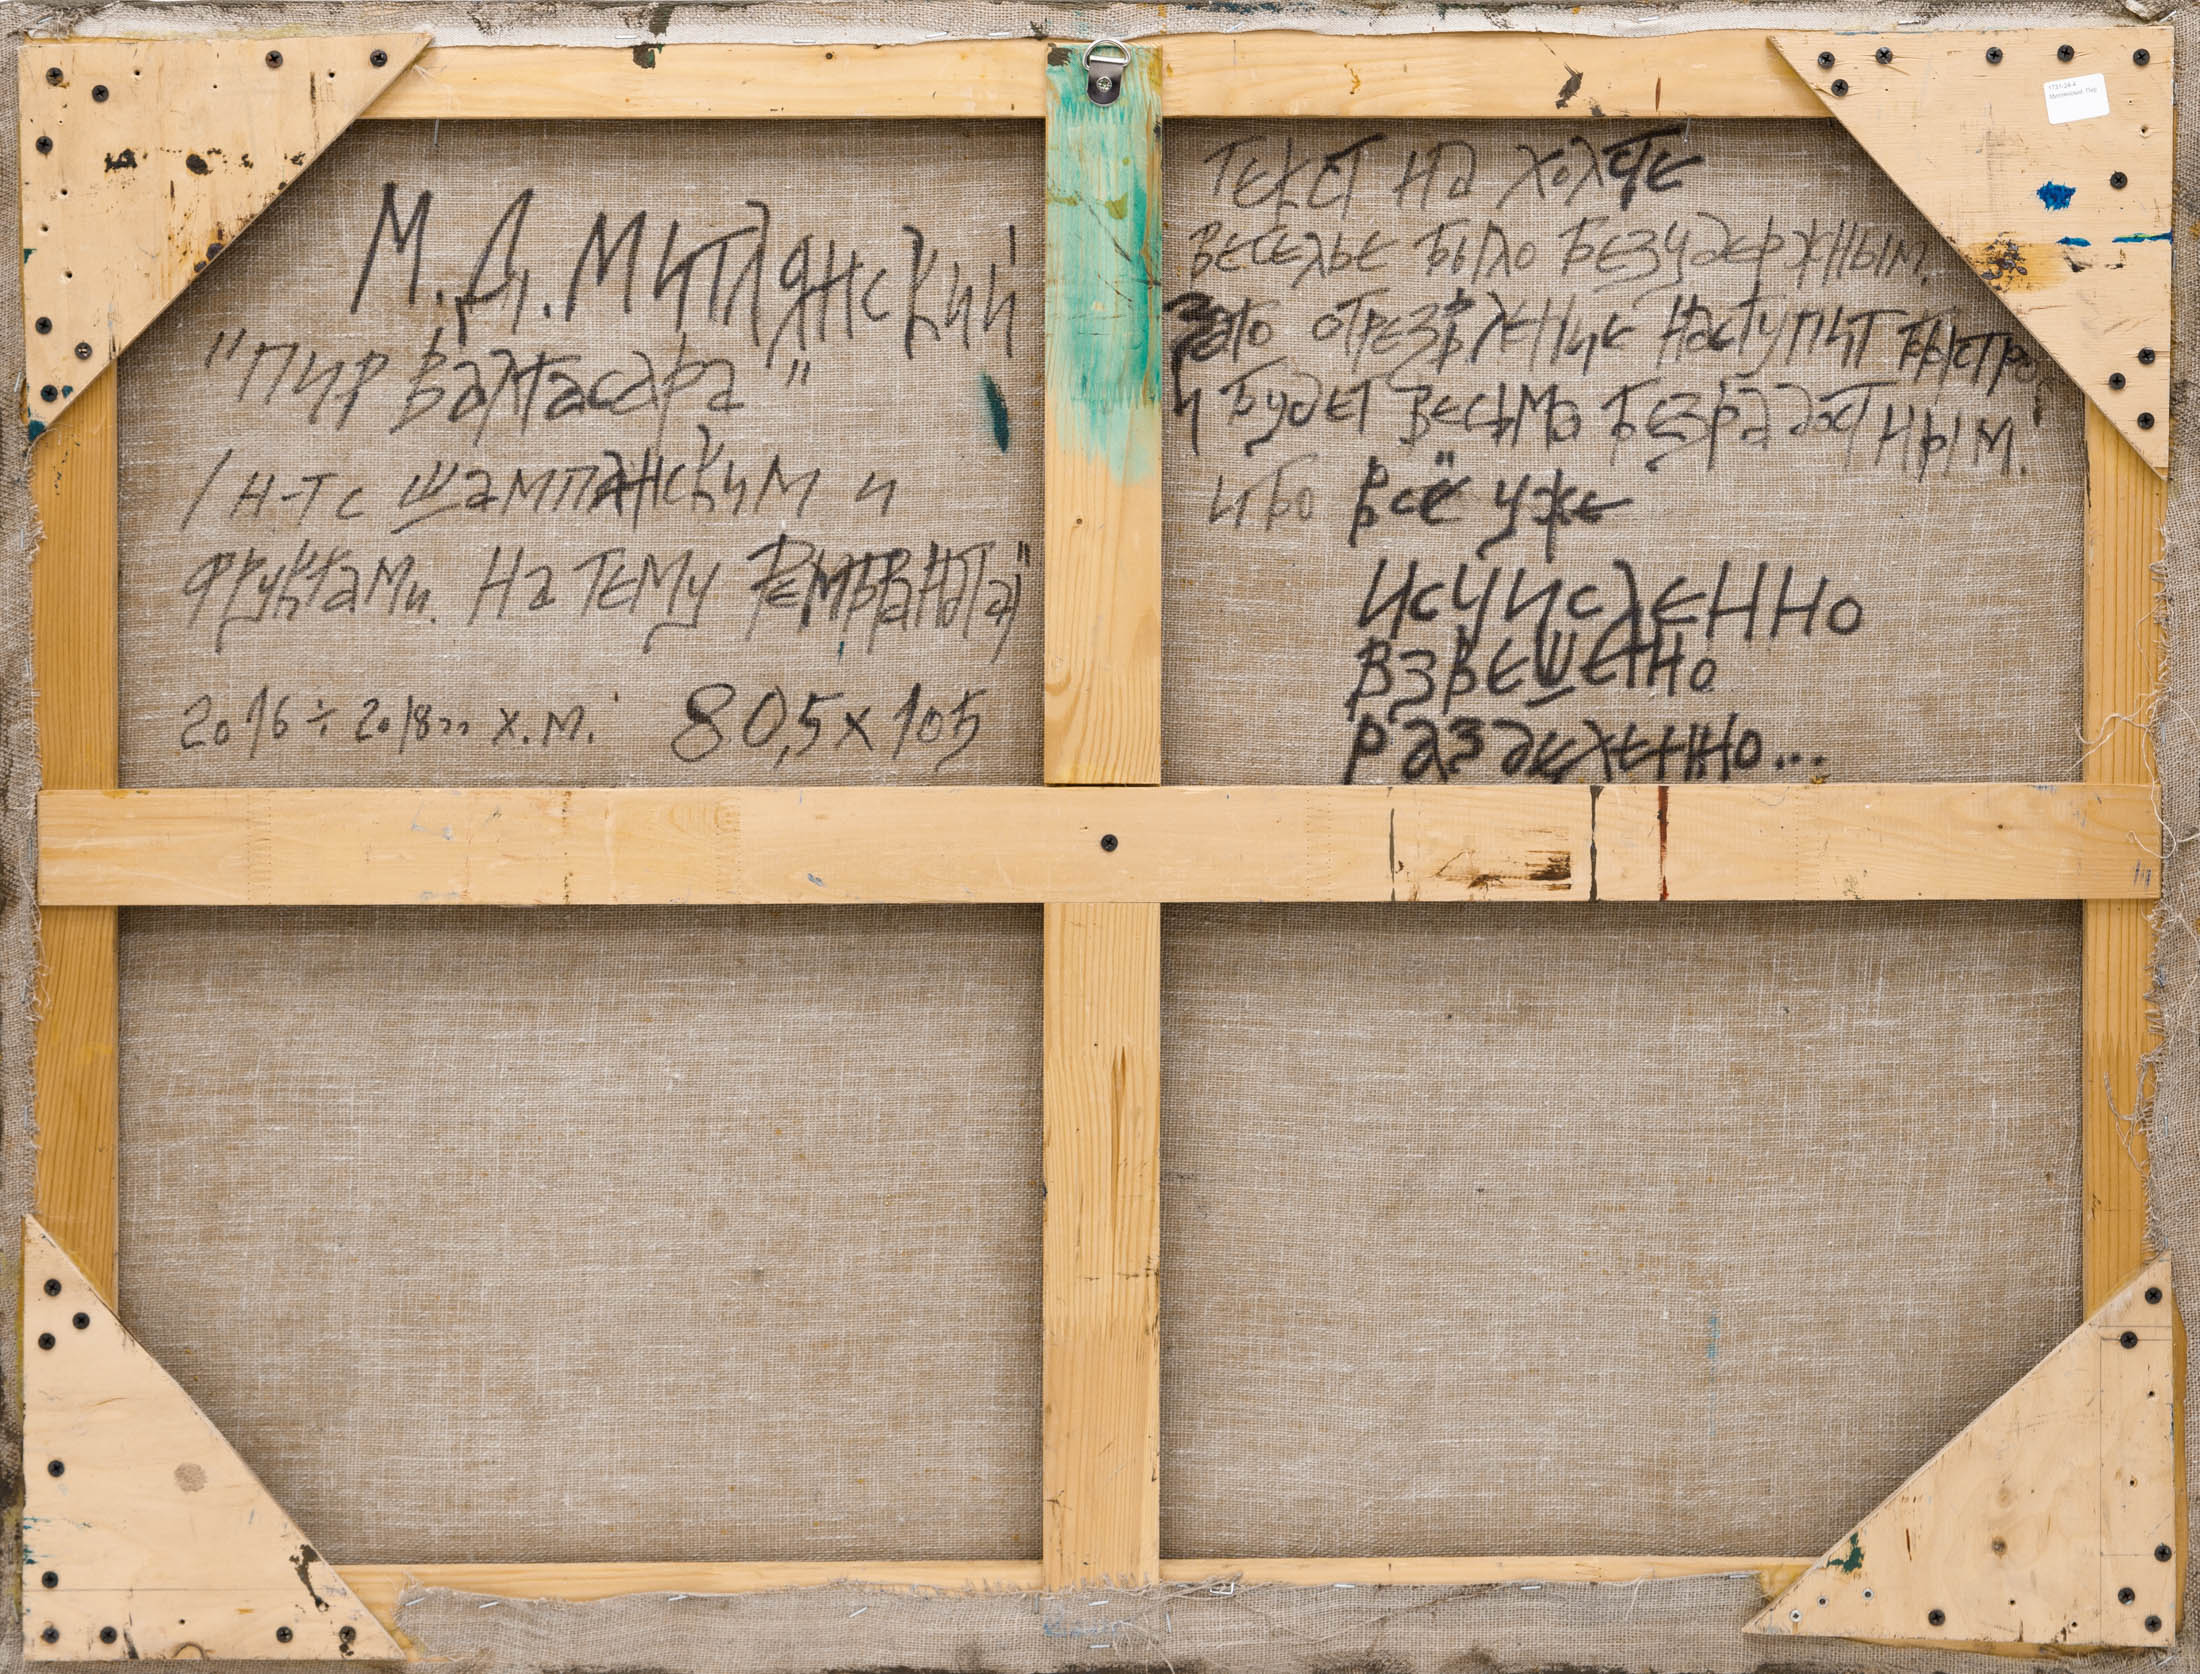 М.Д. Митлянский
"Пир Валтасара"
/н-т с шампанским и
фруктами. На тему Рембранdта/"
2016÷2018гг х.м. 80,5х105
Текст на холсте
Веселье было безудержным.
Зато отрезвление наступит быстро
и будет весьма безрадостным.
ибо всё уже
исчисленно
взвешенно
разделенно...
1731-24-4
Митлянский. Пир